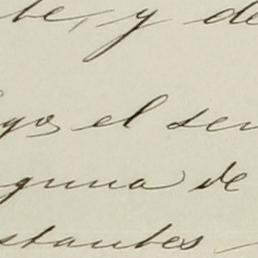 be, y de
go, el sen
guna de
stantes